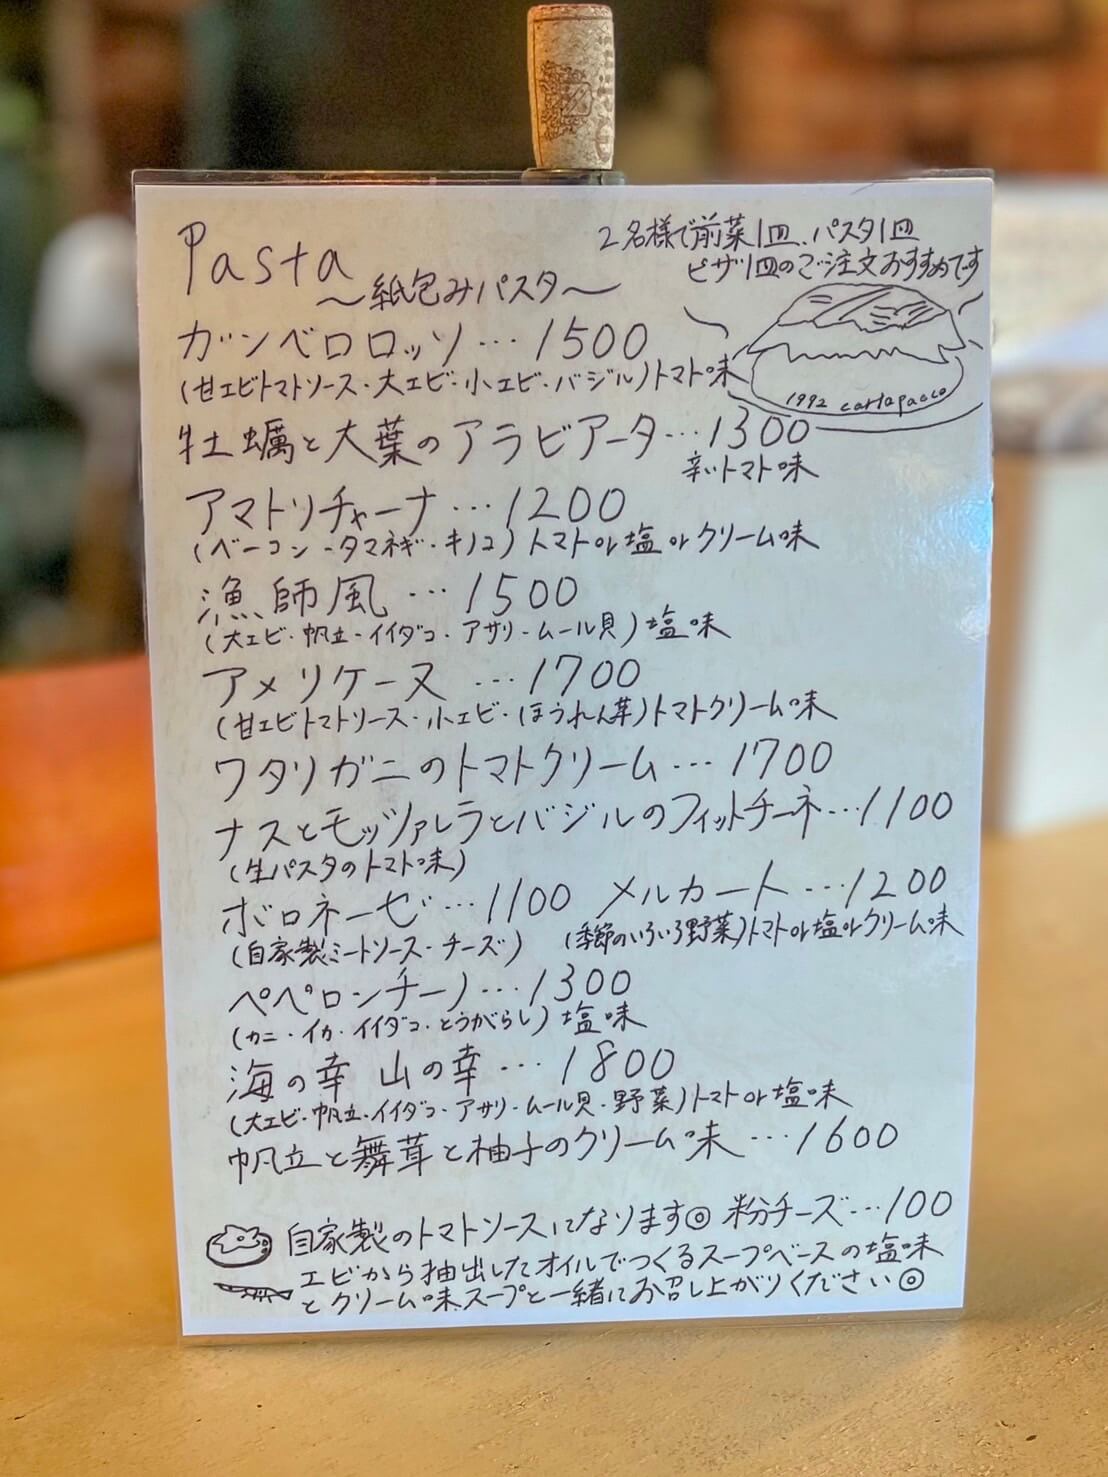 Pasta
〜紙包みパスタ〜
2名様で前菜1皿、パスタ1皿
ピザ1皿のご注文おすすめです
1992 cartapacco
ガンベロロッソ…1500
(甘エビトマトソース・大エビ・小エビ・バジル)トマト味
牡蠣と大葉のアラビアータ…1300
辛いトマト味
アマトリチャーナ…1200
(ベーコン・タマネギ・キノコ)トマトor塩orクリーム味
漁師風…1500
(大エビ・帆立・イイダコ・アサリ・ムール貝)塩味
アメリケーヌ…1700
(甘エビトマトソース・小エビ・ほうれん草)トマトクリーム味
ワタリガニのトマトクリーム…1700
ナスとモッツァレラとバジルのフィットチーネ…1100
(生パスタのトマト味)
ボロネーゼ…1100 メルカート…1200
(自家製ミートソース・チーズ) (季節のいろいろ野菜)トマトor塩orクリーム味
ペペロンチーノ…1300
(カニ・イカ・イイダコ・とうがらし)塩味
海の幸 山の幸…1800
(大エビ・帆立・イイダコ・アサリ・ムール貝・野菜)トマトor塩味
帆立と舞茸と柚子のクリーム味…1600
自家製のトマトソースになります◎ 粉チーズ…100
エビから抽出したオイルでつくるスープベースの塩味
とクリーム味スープと一緒にお召し上がりください◎